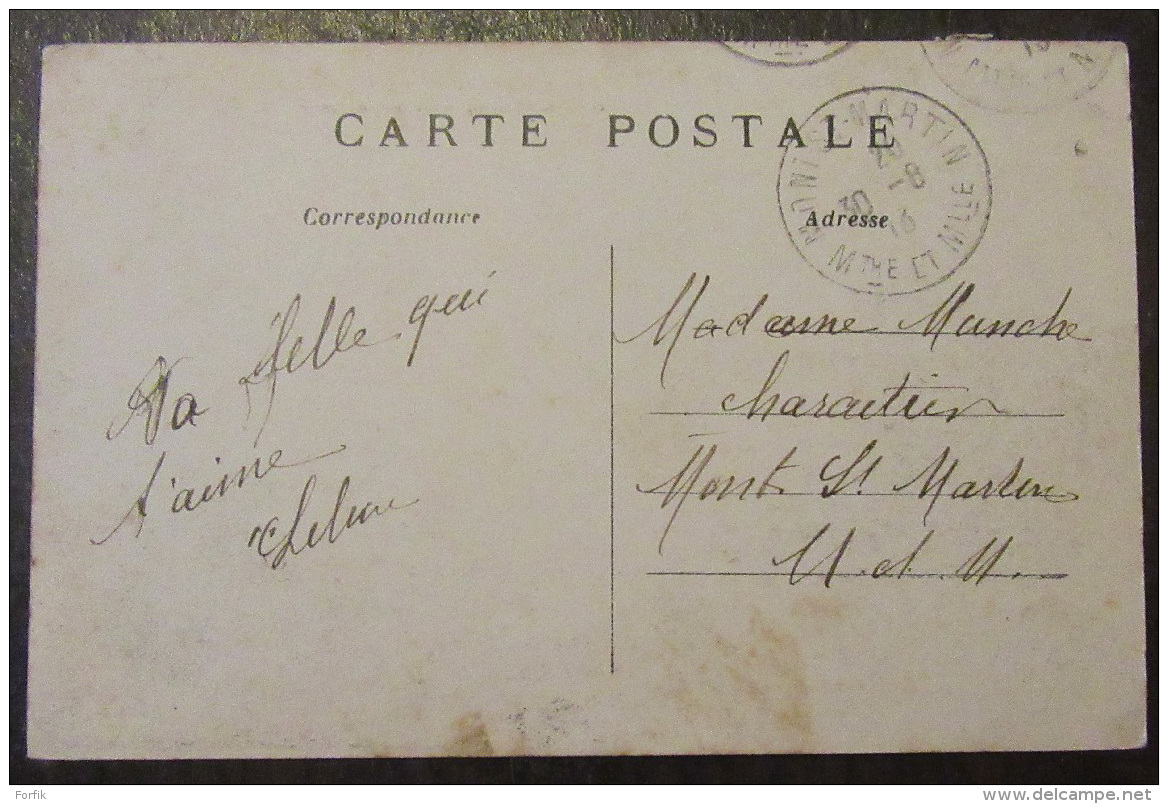 CARTE POSTALE
Correspondance
Adresse
MONT-ST-MARTIN
MTHE ET MLLE
30
qui
Ta fille
t'aime
Madame Munche
Charcutier
Mont St Martin
M. d. M.
Forfik
www.delcampe.net